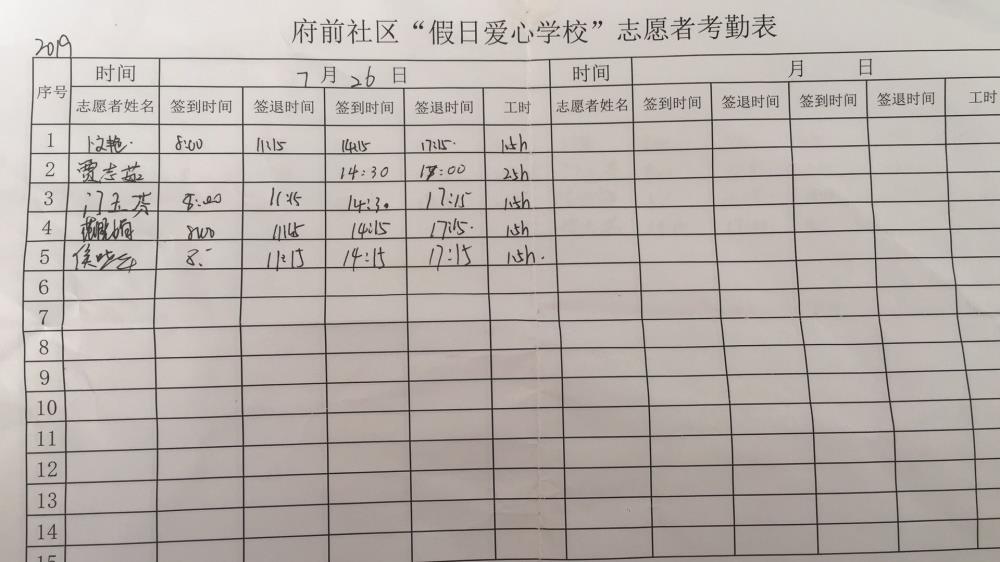 府前社区“假日爱心学校”志愿者考勤表
2019
序号 时间 7月26日 时间 月 日
志愿者姓名 签到时间 签退时间 签到时间 签退时间 工时 志愿者姓名 签到时间 签退时间 签到时间 签退时间 工时
1 8:00 11:15 14:15 17:15
2 贾志茹 14:30 17:00 2.5h
3 门玉芬 8:00 11:15 14:30 17:15
4 8:00 11:15 14:15 17:15
5 侯晓红 11:15 14:15 17:15
6
7
8
9
10
11
12
13
14
15